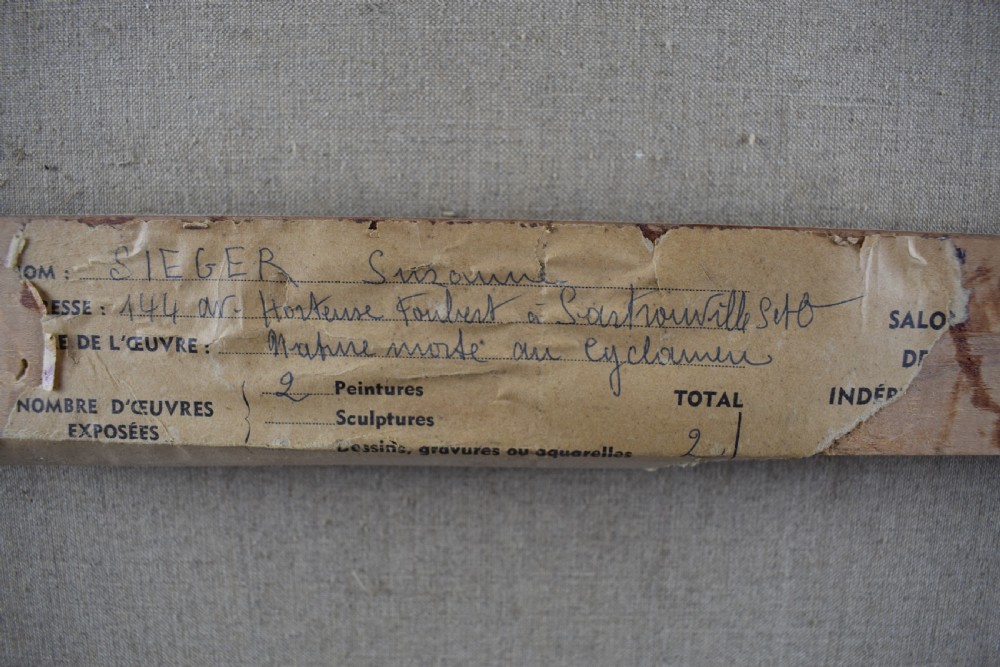 NOM : SIEGER Suzanne
ESSE : 144 av. Hortense Foulbert à Sartrouville S et O
SALO
E DE L'ŒUVRE : Nature morte au Cyclamen
DE
NOMBRE D'ŒUVRES EXPOSÉES
2 Peintures
Sculptures
Dessins, gravures ou aquarelles
TOTAL
2
INDÉP